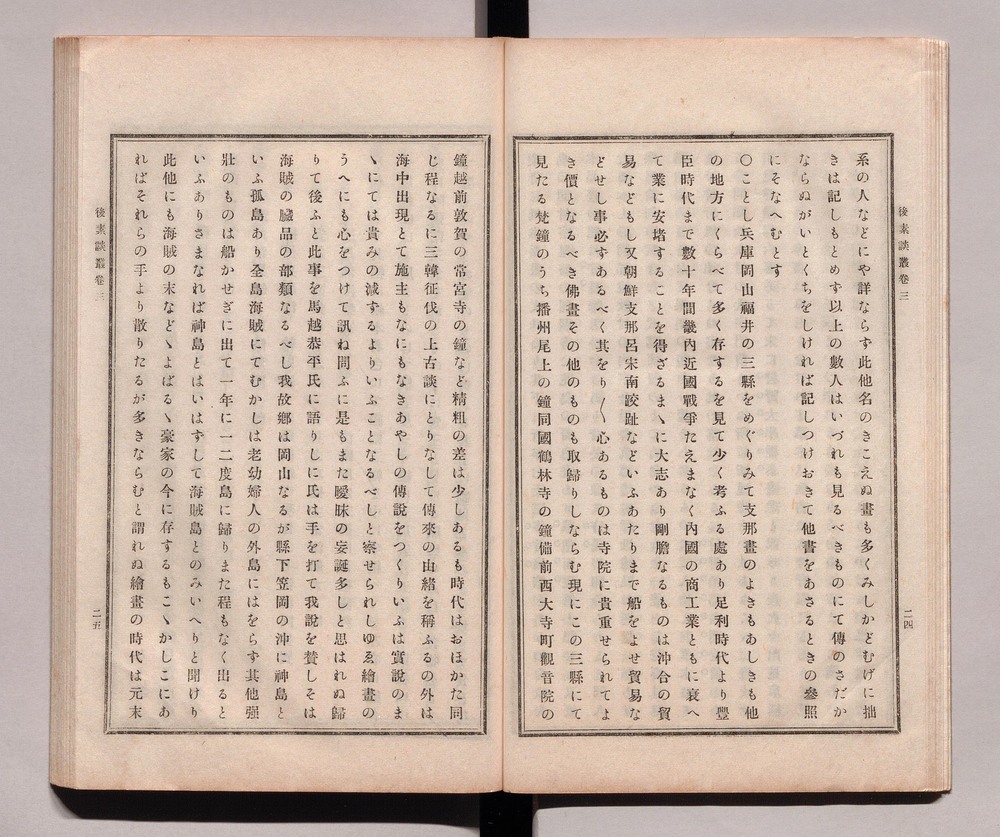 後素談叢卷三
二四
系の人などにや詳ならす此他名のきこえぬ畫も多くみしかどむげに拙
きは記しもとめす以上の數人はいづれも見るべきものにて傳のさだか
ならぬがいとくちをしければ記しつけおきて他書をあさるときの參照
にそなへむとす
〇ことし兵庫岡山福井の三縣をめぐりみて支那畫のよきもあしきも他
の地方にくらべて多く存するを見て少く考ふる處あり足利時代より豐
臣時代まで數十年間畿內近國戰爭たえまなく內國の商工業ともに衰へ
て業に安堵することを得ざるまヽに大志あり剛膽なるものは沖合の貿
易などもし又朝鮮支那呂宋南跤趾などいふあたりまで船をよせ貿易な
どせし事必すあるべく其をり〱心あるものは寺院に貴重せられてよ
き價となるべき佛畫その他のものも取歸りしならむ現にこの三縣にて
見たる梵鐘のうち播州尾上の鐘同國鶴林寺の鐘備前西大寺町觀音院の
鐘越前敦賀の常宮寺の鐘など精粗の差は少しあるも時代はおほかた同
じ程なるに三韓征伐の上古談にとりなして傳來の由緒を稱ふるの外は
海中出現とて施主もなにもなきあやしの傳說をつくりいふは實說のま
ヽにては貴みの減するよりいふことなるべしと察せられしゆゑ繪畫の
うへにも心をつけて訊ね問ふに是もまた曖昧の妄誕多しと思はれぬ歸
りて後ふと此事を馬越恭平氏に語りしに氏は手を打て我說を贊しそは
海賊の贓品の部類なるべし我故鄕は岡山なるが縣下笠岡の沖に神島と
いふ孤島あり全島海賊にてむかしは老幼婦人の外島にはをらす其他强
壯のものは船かせぎに出て一年に一二度島に歸りまた程もなく出ると
いふありさまなれば神島とはいはすして海賊島とのみいへりと聞けり
此他にも海賊の末などヽよばるヽ豪家の今に存するもこヽかしこにあ
ればそれらの手より散りたるが多きならむと謂れぬ繪畫の時代は元末
後素談叢卷三
二五